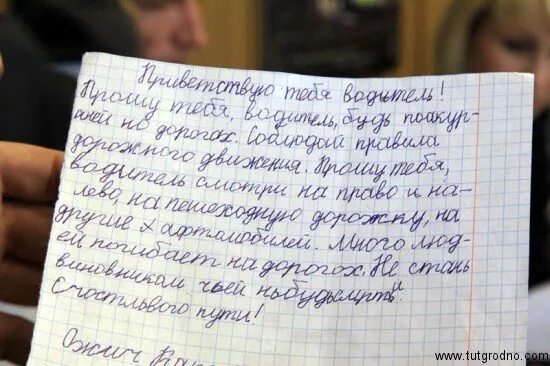 Приветствую тебя водитель!
Прошу тебя, водитель, будь поакур-
атней но дорогах. Соблюдай правила
дорожного движения. Прошу тебя,
водитель смотри на право и на-
лево, на пешеходную дорожку, на
другие х афтомобилей. Много люд-
ей погибает на дорогах. Не стань
виновником чьей нибудь смерти
Счастльвого пути!
Ожич
www.tutgrodno.com